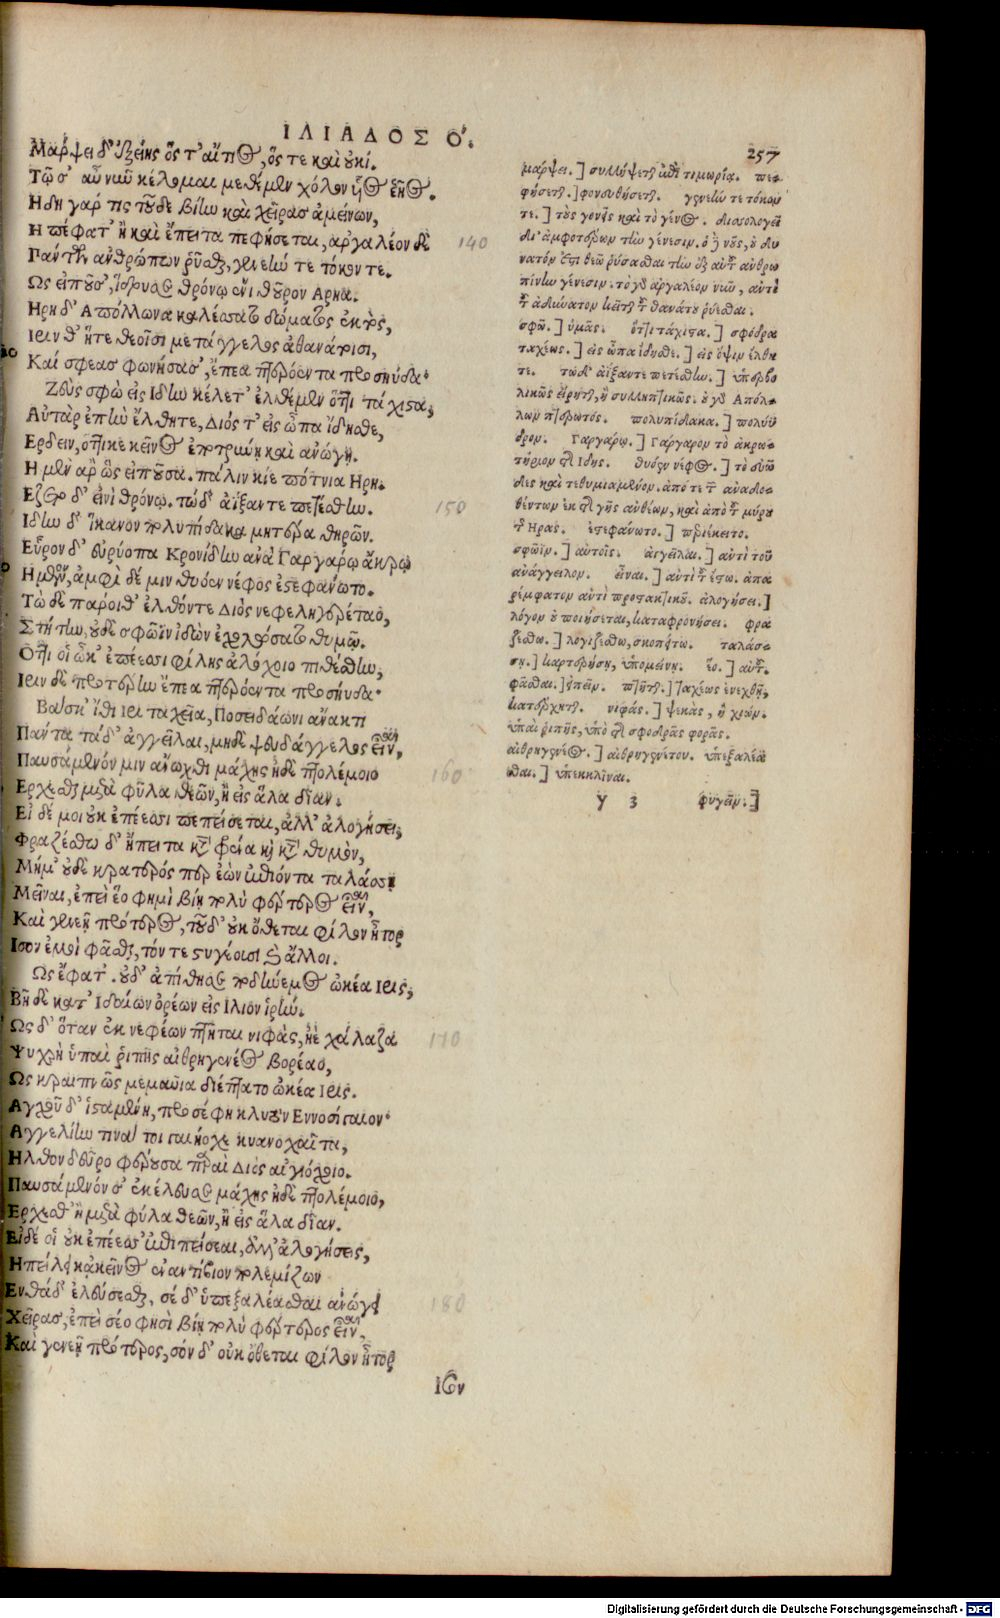 ΙΛΙΑΔΟΣ Ο΄.
257
Μάρψει δ' ἑξείης ὅς τ' αἴτιος, ὅς τε καὶ οὐκί.
Τῷ σ' αὖ νῦν κέλομαι μεθέμεν χόλον υἷος ἑῆος.
Ηδη γάρ τις τοῦδε βίην καὶ χεῖρας ἀμείνων,
Η πέφατ' ἢ καὶ ἔπειτα πεφήσεται, ἀργαλέον δὲ
140
Πάντων ἀνθρώπων ῥῦσθαι γενεήν τε τόκον τε.
Ως εἰποῦσ', ἵδρυσε θρόνῳ ἔνι θοῦρον Αρηα.
Ηρη δ' Απόλλωνα καλέσσατο δώματος ἐκτὸς,
Ιριν θ' ἥτε θεοῖσι μετάγγελος ἀθανάτοισι,
Καί σφεας φωνήσασ', ἔπεα πτερόεντα προσηύδα·
Ζεὺς σφὼ εἰς Ιδην κέλετ' ἐλθέμεν ὅττι τάχιστα,
Αὐτὰρ ἐπὴν ἔλθητε, Διός τ' εἰς ὦπα ἴδησθε,
Ερδειν, ὅττι κε κεῖνος ἐποτρύνῃ καὶ ἀνώγῃ.
Η μὲν ἄρ' ὣς εἰποῦσα. πάλιν κίε πότνια Ηρη.
Εζετο δ' εἰνὶ θρόνῳ. τὼ δ' ἀΐξαντε πετέσθην.
150
Ιδην δ' ἵκανον πολυπίδακα μητέρα θηρῶν.
Εὗρον δ' εὐρύοπα Κρονίδην ἀνὰ Γαργάρῳ ἄκρῳ
Ημενον, ἀμφὶ δέ μιν θυόεν νέφος ἐστεφάνωτο.
Τὼ δὲ πάροιθ' ἐλθόντε Διὸς νεφεληγερέταο,
Στήτην, οὐδέ σφῶϊν ἰδὼν ἐχολώσατο θυμῷ.
Οττι οἱ ὦκ' ἐπέεσσι φίλης ἀλόχοιο πιθέσθην,
Ιριν δὲ προτέρην ἔπεα πτερόεντα προσηύδα·
Βάσκ' ἴθι Ιρι ταχεῖα, Ποσειδάωνι ἄνακτι
Πάντα τάδ' ἀγγεῖλαι, μηδὲ ψευδάγγελος εἶναι,
Παυσάμενόν μιν ἄνωχθι μάχης ἠδὲ πτολέμοιο
160
Ερχεσθαι μετὰ φῦλα θεῶν, ἢ εἰς ἅλα δῖαν.
Εἰ δέ μοι οὐκ ἐπέεσσι πεπείσεται, ἀλλ' ἀλογήσει,
Φραζέσθω δ' ἤπειτα κατὰ φρένα καὶ κατὰ θυμὸν,
Μή μ' οὐδὲ κρατερός περ ἐὼν ἐπιόντα ταλάσσῃ
Μεῖναι, ἐπεὶ ἕο φημὶ βίῃ πολὺ φέρτερος εἶναι,
Καὶ γενεῇ πρότερος, τοῦ δ' οὐκ ὄθεται φίλον ἦτορ
Ισον ἐμοὶ φᾶσθαι, τόν τε στυγέουσι καὶ ἄλλοι.
Ως ἔφατ'. οὐδ' ἀπίθησε ποδήνεμος ὠκέα Ιρις,
Βῆ δὲ κατ' Ιδαίων ὀρέων εἰς Ιλιον ἱρήν.
Ως δ' ὅταν ἐκ νεφέων πτῆται νιφὰς, ἠὲ χάλαζα
170
Ψυχρὴ ὑπαὶ ῥιπῆς αἰθρηγενέος βορέαο,
Ως κραιπνῶς μεμαυῖα διέπτατο ὠκέα Ιρις.
Αγχοῦ δ' ἱσταμένη, προσέφη κλυτὸν Εννοσίγαιον·
Αγγελίην τινά τοι γαιήοχε κυανοχαῖτα,
Ηλθον δεῦρο φέρουσα παραὶ Διὸς αἰγιόχοιο.
Παυσάμενόν σ' ἐκέλευσε μάχης ἠδὲ πτολέμοιο,
Ερχεσθ' ἢ μετὰ φῦλα θεῶν, ἢ εἰς ἅλα δῖαν.
Εἰ δέ οἱ οὐκ ἐπέεσσ' ἐπιπείσεαι, ἀλλ' ἀλογήσεις,
Ηπείλει κἀκεῖνος ἐναντίβιον πολεμίζων
Ενθάδ' ἐλεύσεσθαι, σὲ δ' ὑπεξαλέασθαι ἀνώγει
180
Χεῖρας, ἐπεὶ σέο φησὶ βίῃ πολὺ φέρτερος εἶναι,
Καὶ γενεῇ πρότερος, σὸν δ' οὐκ ὄθεται φίλον ἦτορ
Ισον
μάρψει.] συλλήψεται ἐπὶ τιμωρίᾳ. πε-
φήσεται.] φονευθήσεται. γενεήν τε τόκον
τε.] τοὺς γονεῖς καὶ τὸ γένος.
σφῶ.] ὑμᾶς. ὅττι τάχιστα.] σφόδρα
ταχέως.] εἰς ὦπα ἴδησθε.] εἰς ὄψιν ἔλθη
τε. τὼ δ' ἀΐξαντε πετέσθην.] ὑπερβο
λικῶς εἴρηται, ἢ συλληπτικῶς. ὁ γὰρ Απόλ-
λων πτερωτός. πολυπίδακα.] πολύυ
δρον. Γαργάρῳ.] Γαργαρον τὸ ἀκρω-
τήριον τῆς Ιδης. θυόεν νέφος.] τὸ εὐῶ
δες καὶ τεθυμιαμένον. ἀπὸ τε τῶν ἀναδο-
θέντων ἐκ τῆς γῆς ἀνθέων, καὶ ἀπὸ τοῦ μύρου
τῆς Ηρας. ἐστεφάνωτο.] περιέκειτο.
σφῶϊν.] αὐτοῖς. ἀγγεῖλαι.] ἀντὶ τοῦ
ἀνάγγειλον. εἶναι.] ἀντὶ τοῦ ἔσο. ἀπα
ρέμφατον ἀντὶ προστακτικοῦ. ἀλογήσει.]
λόγον οὐ ποιήσεται, καταφρονήσει. φρα
ζέσθω.] λογιζέσθω, σκοπείτω. ταλάσ-
σῃ.] καρτερήσῃ, ὑπομείνῃ. ἕο.] αὐτοῦ.
φᾶσθαι.] εἰπεῖν. πτῆται.] ταχέως ἐνεχθῇ,
κατέρχηται. νιφάς.] ψεκὰς, ἢ χιών.
ὑπαὶ ῥιπῆς, ὑπὸ τῆς σφοδρᾶς φορᾶς.
αἰθρηγενέος.] αἰθρηγενέτου. ὑπεξαλέα
σθαι.] ὑπεκκλῖναι.
y 3 φυγεῖν.]
Digitalisierung gefördert durch die Deutsche Forschungsgemeinschaft - DFG